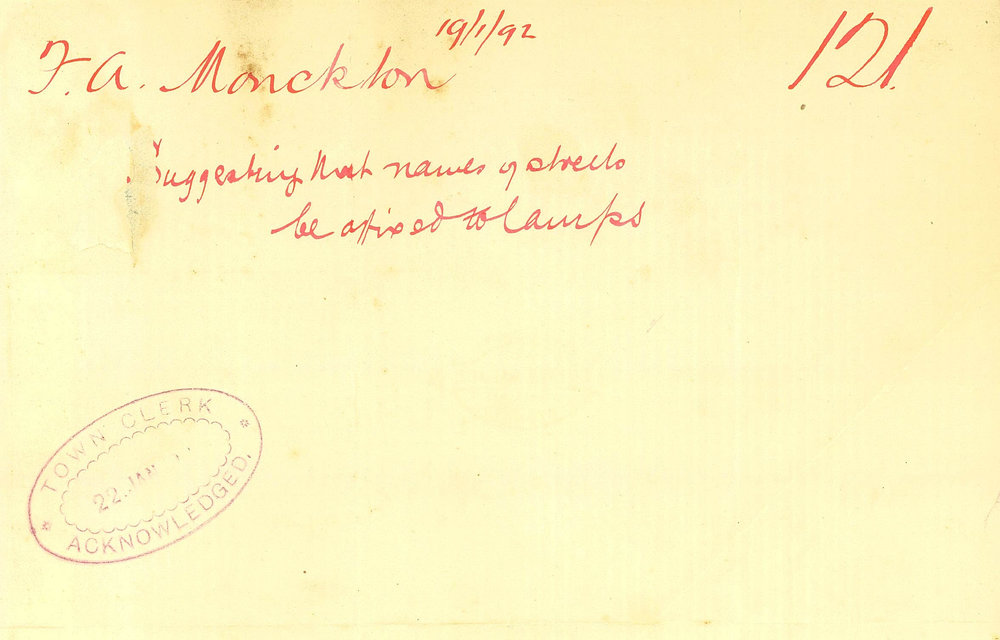 19/1/92
F. A. Monckton
121.
Suggesting that names of streets
be affixed to lamps
TOWN CLERK
22 JAN
ACKNOWLEDGED.